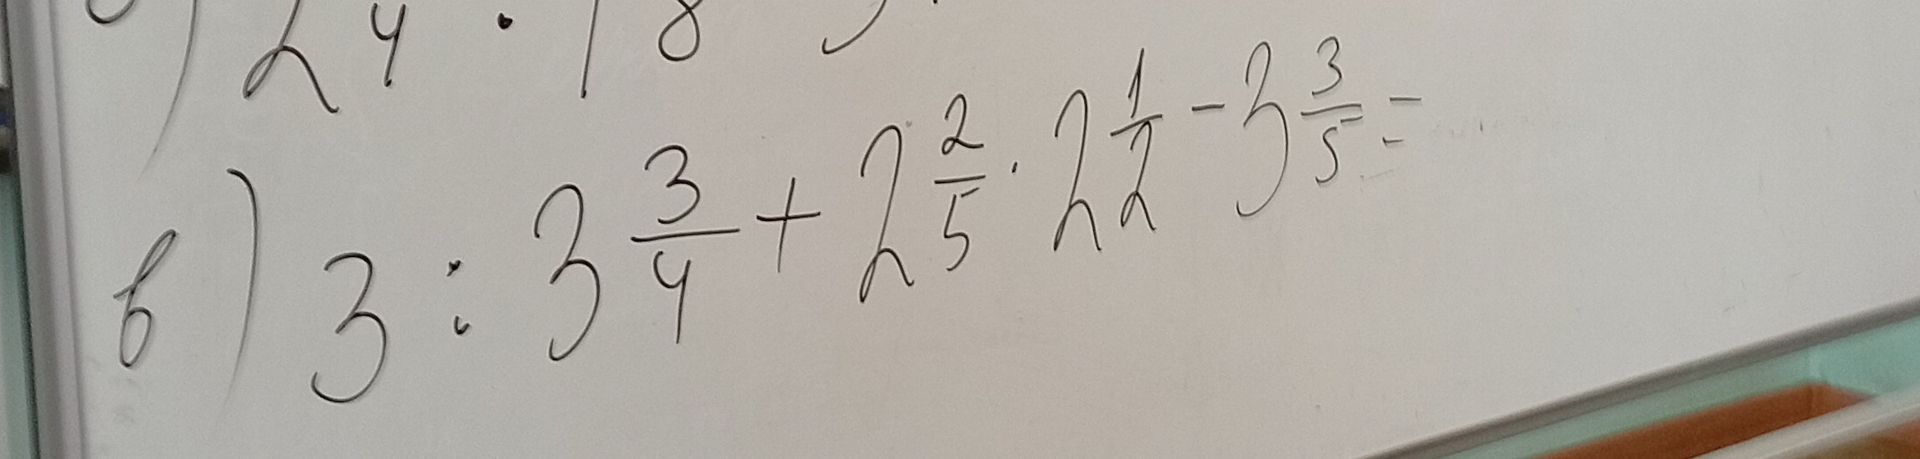 ) 24 · 18
в) 3 : 3 3/4 + 2 2/5 · 2 1/2 - 3 3/5 =